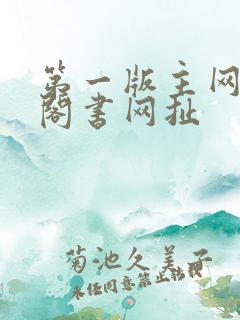 第一版主网
阁书网扯
菊池久美子
未经同意禁止转载